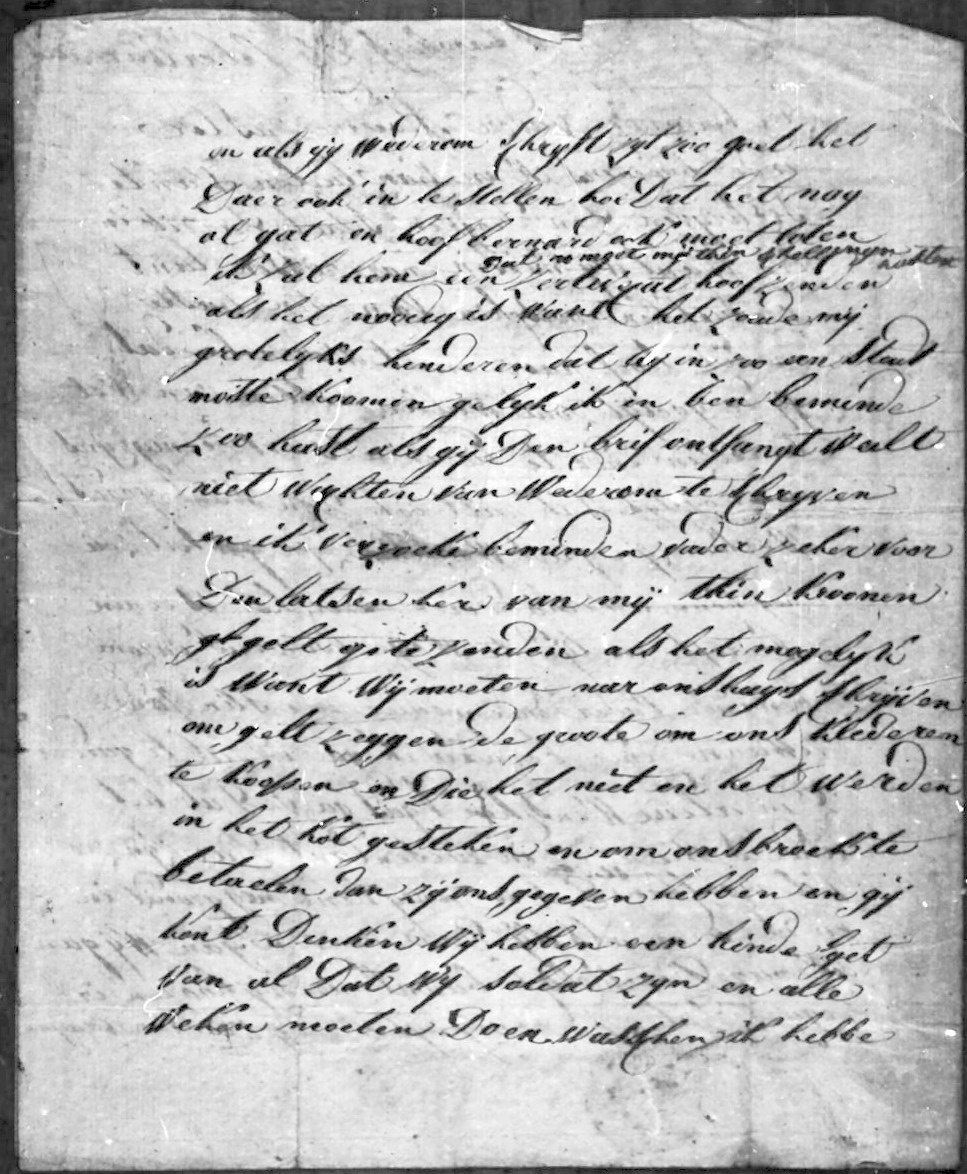 en als gy wederom schryft zyt zoo goet het
Daer ook in te stellen hoe Dat het nog
al gat en hoof bernard ook moet loten
Dat nomoer myn
ik zal hem een zertivicat hoof zenden
als het noodig is want het zoude mij
grotelyks hinderen dat hij in zoo een Staet
moste koomen gelyk ik in ben beminde
zoo hast als gij Den brif ontfangt weilt
niet wachten van wederom te schryven
en ik verzoeke beminden vader zeker voor
Den latsen ker van mij thin kroonen
gelt te zenden als het mogelyk
is want wij moeten naer ons huys schrijven
om gelt zeggen de groote om ons klederen
te koopen en Die het niet en het werden
in het kot gesteken en om ons broek te
betaelen dan zij ons gegeven hebben en gij
kont Denken wij hebben een hinde
van al Dat wy soldat zyn en alle
weken moeten Doen wasschen ik hebbe